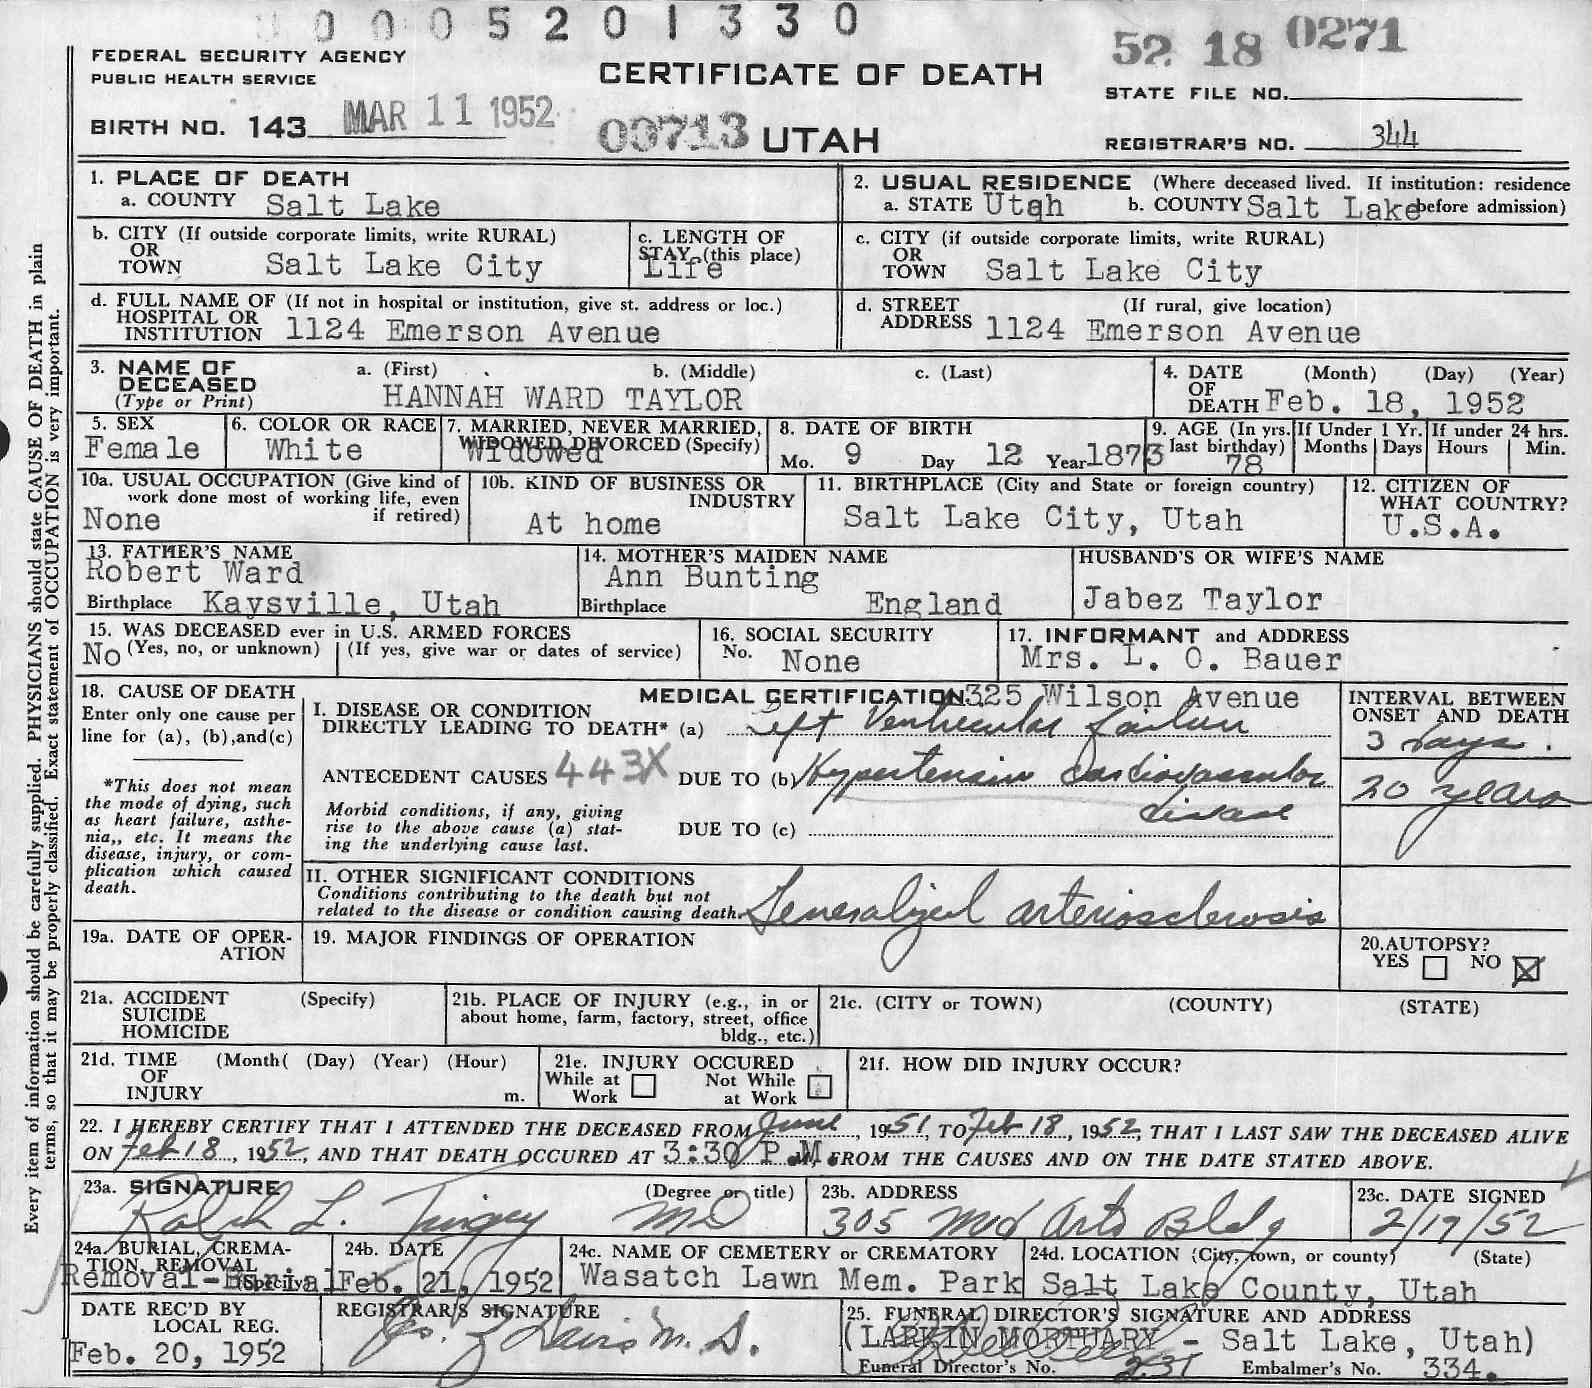 0 0 0 5 2 0 1 3 3 0
FEDERAL SECURITY AGENCY
PUBLIC HEALTH SERVICE
CERTIFICATE OF DEATH
52 18 0271
STATE FILE NO.
BIRTH NO. 143 MAR 11 1952
UTAH
REGISTRAR'S NO. 344
Every item of information should be carefully supplied. PHYSICIANS should state CAUSE OF DEATH in plain
terms, so that it may be properly classified. Exact statement of OCCUPATION is very important.
1. PLACE OF DEATH
a. COUNTY Salt Lake
2. USUAL RESIDENCE (Where deceased lived. If institution: residence
a. STATE Utah b. COUNTY Salt Lake before admission)
b. CITY (If outside corporate limits, write RURAL)
OR
TOWN Salt Lake City
c. LENGTH OF
STAY (this place)
Life
c. CITY (if outside corporate limits, write RURAL)
OR
TOWN Salt Lake City
d. FULL NAME OF (If not in hospital or institution, give st. address or loc.)
HOSPITAL OR
INSTITUTION 1124 Emerson Avenue
d. STREET (If rural, give location)
ADDRESS 1124 Emerson Avenue
3. NAME OF a. (First) b. (Middle) c. (Last)
DECEASED
(Type or Print) HANNAH WARD TAYLOR
4. DATE (Month) (Day) (Year)
OF
DEATH Feb. 18, 1952
5. SEX
Female
6. COLOR OR RACE
White
7. MARRIED, NEVER MARRIED,
WIDOWED, DIVORCED (Specify)
Widowed
8. DATE OF BIRTH
Mo. 9 Day 12 Year 1873
9. AGE (In yrs.
last birthday)
78
If Under 1 Yr.
Months Days
If under 24 hrs.
Hours Min.
10a. USUAL OCCUPATION (Give kind of
work done most of working life, even
if retired)
None
10b. KIND OF BUSINESS OR
INDUSTRY
At home
11. BIRTHPLACE (City and State or foreign country)
Salt Lake City, Utah
12. CITIZEN OF
WHAT COUNTRY?
U.S.A.
13. FATHER'S NAME
Robert Ward
Birthplace Kaysville, Utah
14. MOTHER'S MAIDEN NAME
Ann Bunting
Birthplace England
HUSBAND'S OR WIFE'S NAME
Jabez Taylor
15. WAS DECEASED ever in U.S. ARMED FORCES
No (Yes, no, or unknown) (If yes, give war or dates of service)
16. SOCIAL SECURITY
No. None
17. INFORMANT and ADDRESS
Mrs. L. O. Bauer
1325 Wilson Avenue
18. CAUSE OF DEATH
Enter only one cause per
line for (a), (b),and(c)
*This does not mean
the mode of dying, such
as heart failure, asthe-
nia,, etc. It means the
disease, injury, or com-
plication which caused
death.
MEDICAL CERTIFICATION
I. DISEASE OR CONDITION
DIRECTLY LEADING TO DEATH* (a) Left Ventricular failure
ANTECEDENT CAUSES 443X DUE TO (b) Hypertensive cardiovascular
disease
Morbid conditions, if any, giving
rise to the above cause (a) stat-
ing the underlying cause last.
DUE TO (c)
INTERVAL BETWEEN
ONSET AND DEATH
3 days.
20 years
II. OTHER SIGNIFICANT CONDITIONS
Conditions contributing to the death but not
related to the disease or condition causing death. Generalized arteriosclerosis
19a. DATE OF OPER-
ATION
19. MAJOR FINDINGS OF OPERATION
20. AUTOPSY?
YES NO
21a. ACCIDENT (Specify)
SUICIDE
HOMICIDE
21b. PLACE OF INJURY (e.g., in or
about home, farm, factory, street, office
bldg., etc.)
21c. (CITY or TOWN) (COUNTY) (STATE)
21d. TIME (Month( (Day) (Year) (Hour)
OF
INJURY m.
21e. INJURY OCCURED
While at Work Not While at Work
21f. HOW DID INJURY OCCUR?
22. I HEREBY CERTIFY THAT I ATTENDED THE DECEASED FROM June, 1951, TO Feb 18, 1952, THAT I LAST SAW THE DECEASED ALIVE
ON Feb 18, 1952, AND THAT DEATH OCCURED AT 3:30 P.M. FROM THE CAUSES AND ON THE DATE STATED ABOVE.
23a. SIGNATURE (Degree or title)
Ralph L. Tingey MD
23b. ADDRESS
305 Med Arts Bldg
23c. DATE SIGNED
2/19/52
24a. BURIAL, CREMA-
TION, REMOVAL
(Specify)
Removal-Burial
24b. DATE
Feb. 21, 1952
24c. NAME OF CEMETERY or CREMATORY
Wasatch Lawn Mem. Park
24d. LOCATION (City, town, or county) (State)
Salt Lake County, Utah
DATE REC'D BY
LOCAL REG.
Feb. 20, 1952
REGISTRAR'S SIGNATURE
Davis M. D.
25. FUNERAL DIRECTOR'S SIGNATURE AND ADDRESS
(LARKIN MORTUARY - Salt Lake, Utah)
Funeral Director's No. 231 Embalmer's No. 334.